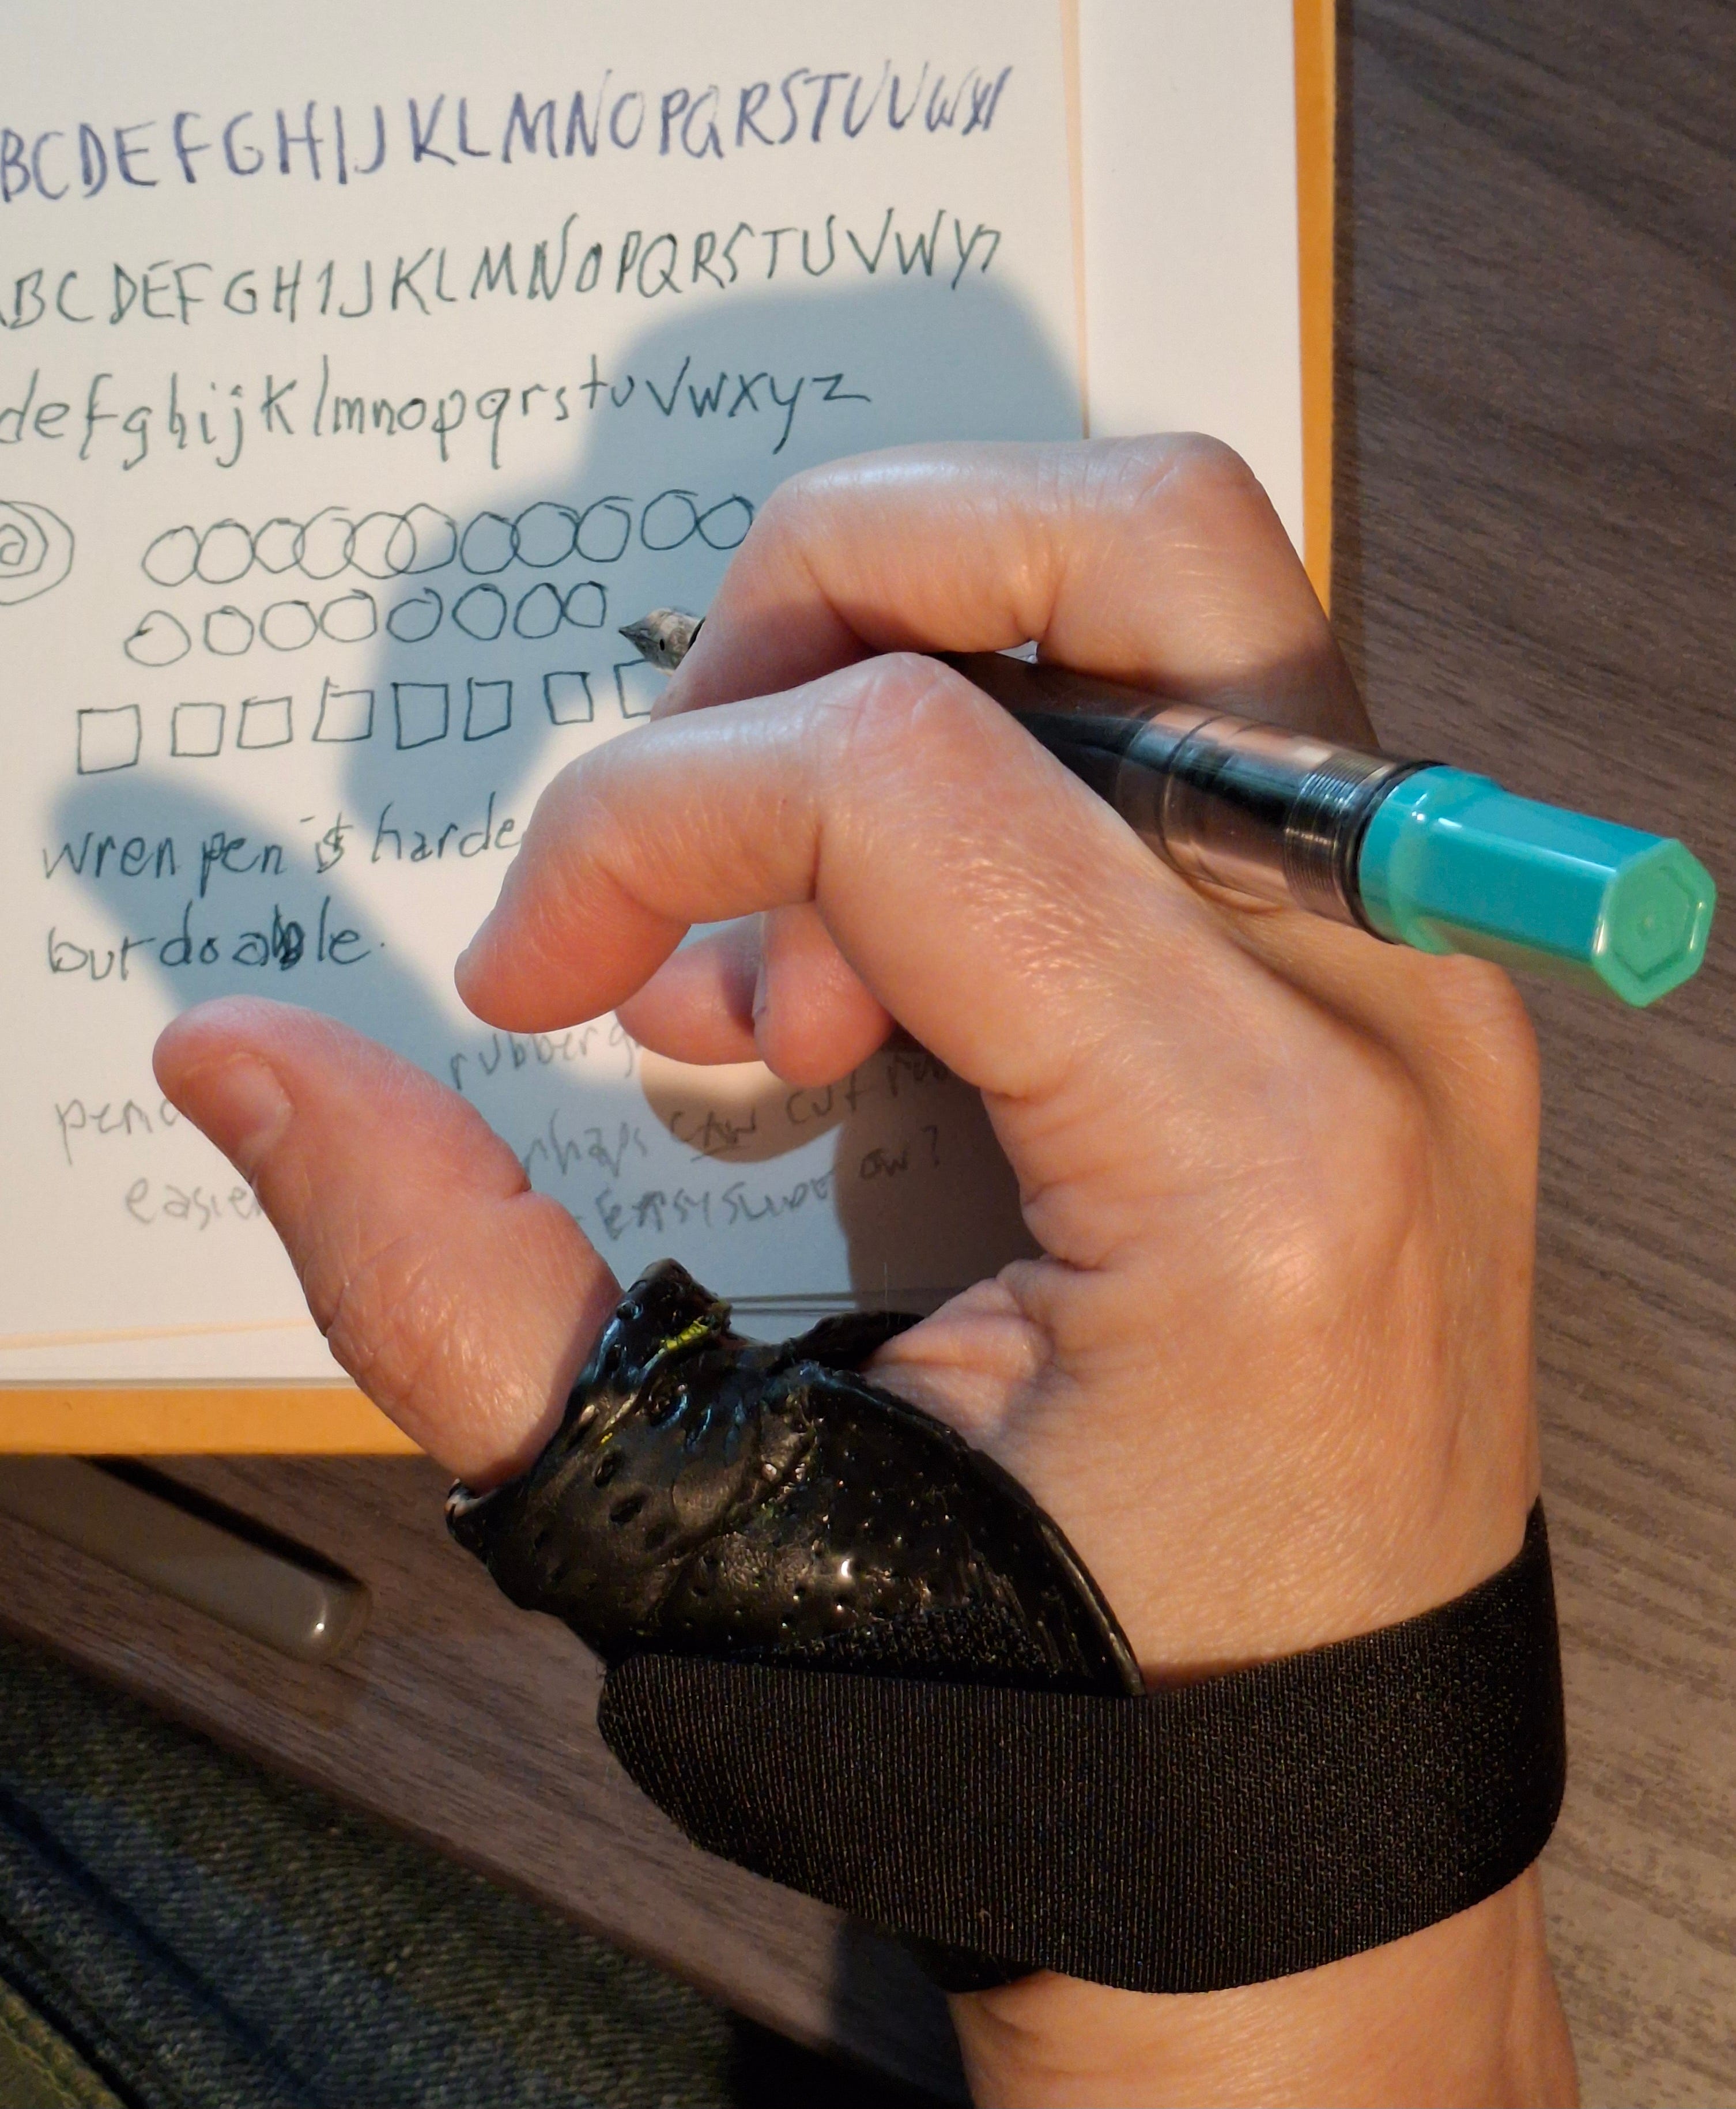 BCDEFGHIJKLMNOPQRSTUVWXY
ABCDEFGHIJKLMNOPQRSTUVWYZ
defghijklmnopqrstuvwxyz
wren pen is harde
but doable.
rubber g
pen cut
easier